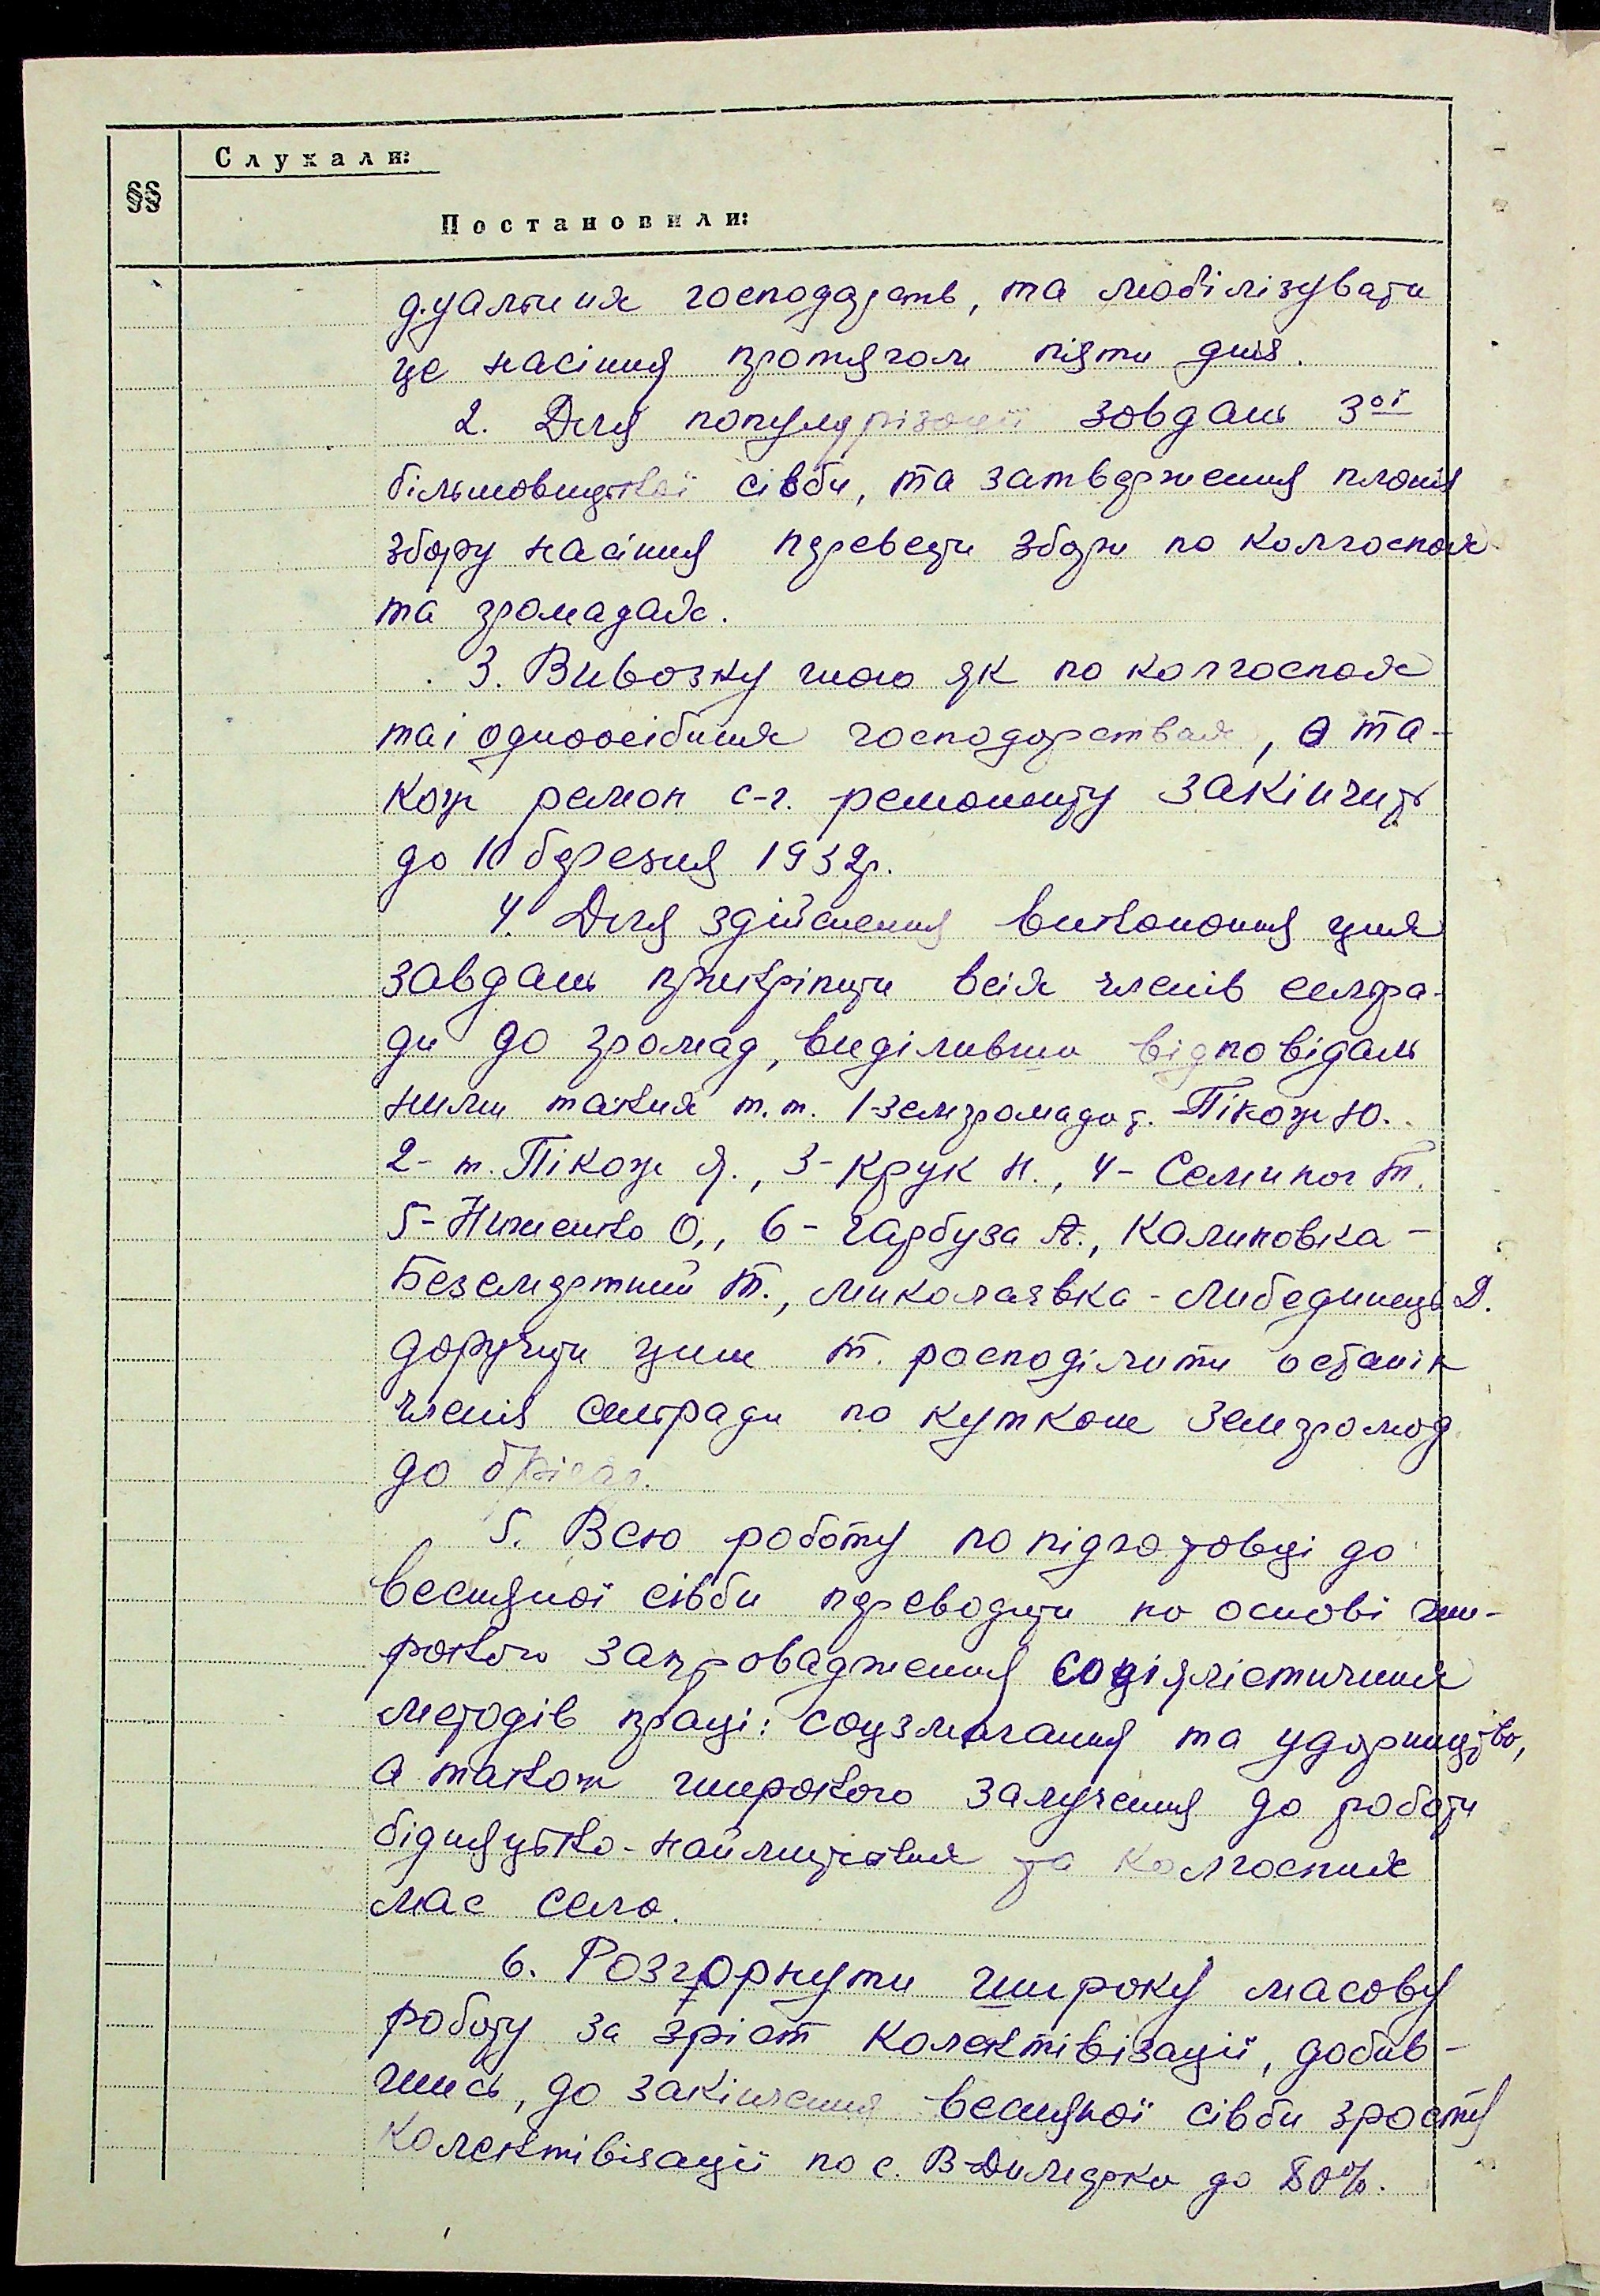 Слухали:
§§
Постановили:
дуальних господарств, та мобілізувати
це насіння протягом пяти днів.
2. Для популярізації завдань 3ої
більшовицької сівби, та затвердження планів
збору насіння перевести збори по колгоспах
та громадах.
3. Вивозку гною як по колгоспах
та і одноосібних господарствах, а та-
кож ремон с-г. реманенту закінчить
до 10 березня 1932р.
4. Для здійснення виконання цих
завдань прикріпити всіх членів сельра-
ди до громад, виділивши відповідаль
ними таких т.т. 1-земгромада т. Пікож Ю.
2- т. Пікож Я., 3- Крук Н., 4- Семипог Т.
5- Ниженко О., 6- Гарбуза А., Калиновка -
Безсмертний Т., Миколаявка - Либединець Д.
доручити цим т. росподілити останіх
членів сельради по куткам земгромад
до
5. Всю роботу по підготовці до
весняної сівби переводити на основі ши-
рокого запровадження соціялістичних
методів праці: соцзмагання та ударництво,
а також широкого залучення до роботи
бідняцько-наймитських та колгоспних
мас села.
6. Розгорнути широку масову
роботу за зріст колективізації, добив-
шись, до закінчення весняної сівби зросту
колективізації по с. В-Димерка до 80%.